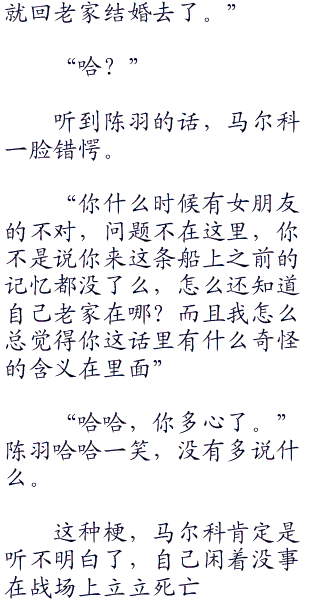 就回老家结婚去了。”
“哈？”
听到陈羽的话，马尔科
一脸错愕。
“你什么时候有女朋友
的不对，问题不在这里，你
不是说你来这条船上之前的
记忆都没了么，怎么还知道
自己老家在哪？而且我怎么
总觉得你这话里有什么奇怪
的含义在里面”
“哈哈，你多心了。”
陈羽哈哈一笑，没有多说什
么。
这种梗，马尔科肯定是
听不明白了，自己闲着没事
在战场上立立死亡